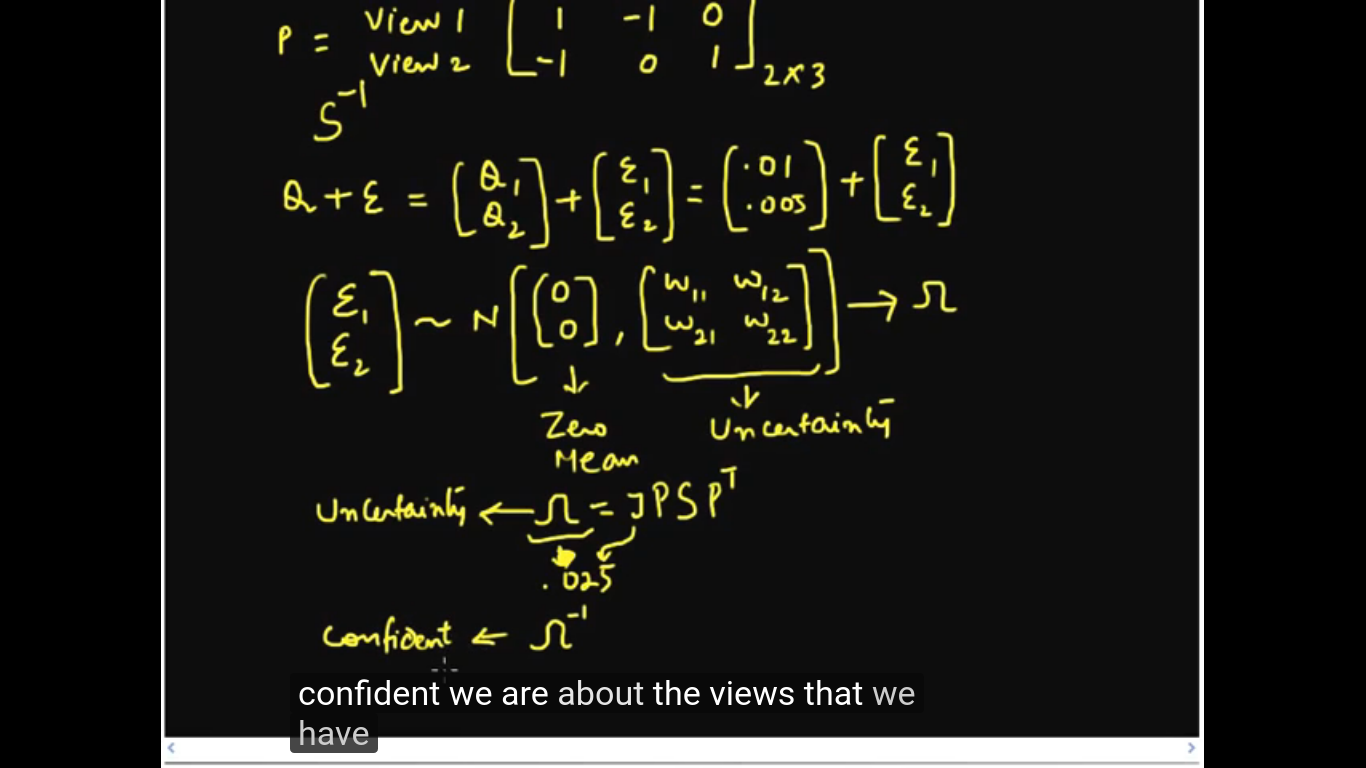 P = View 1 [ 1 -1 0 ]
View 2 [ -1 0 1 ] 2×3
S⁻¹
Q + ε = [Q₁ Q₂] + [ε₁ ε₂] = [.01 .005] + [ε₁ ε₂]
[ε₁ ε₂] ~ N [ [0 0] , [w₁₁ w₁₂ w₂₁ w₂₂] ] → Ω
↓ ↓
Zero Uncertainty
Mean
Uncertainty ← Ω = J P S Pᵀ
.025
Confident ← Ω⁻¹
confident we are about the views that we
have